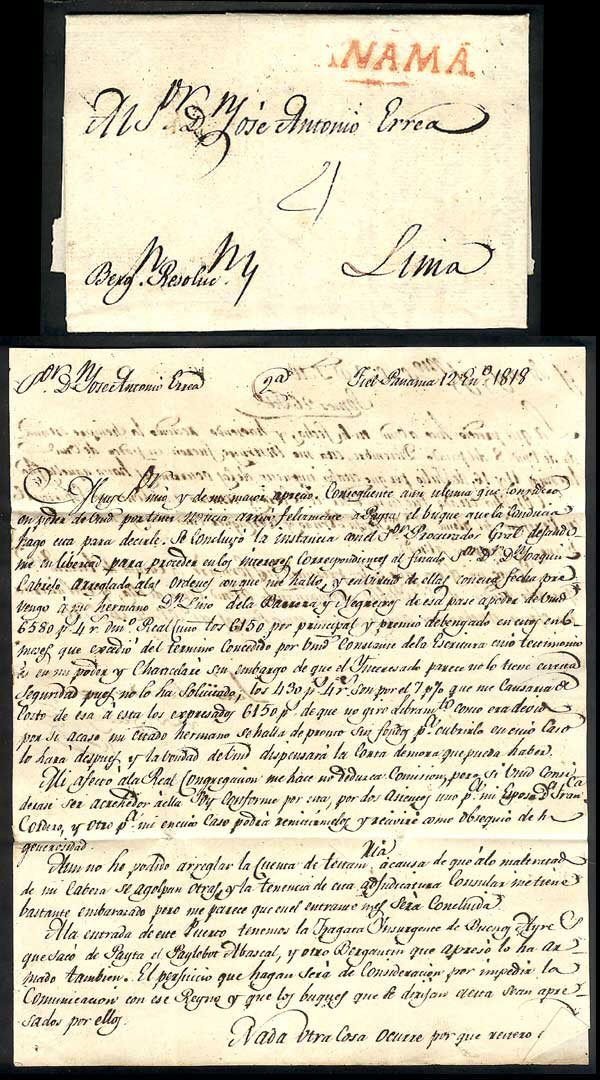 PANAMA.
Al Sor. Dn. José Antonio Errea
4
Berg.n Resoluc.n
Lima
Sor. Dn. Jose Antonio Errea
2a
Panama 12 En.o 1818
Muy Sor. mio y de mi mayor aprecio. Conseqüente a mi ultima que considero
en poder de Vmd por tener noticia arrivó felizmente a Payta el buque que la conducia
hago esta para decirle. Se concluyó la instancia con el Sor. Procurador Gral dejando-
me en libertad para proceder en los intereses correspondientes al finado Sor. Dr. Dn. Joaquin
Cabrejo. Arreglado alas ordenes con que me hallo, y en virtud de ellas con esta fecha pre-
vengo á mi hermano Dn. Lino dela Barrera y Negreiros de esa pase a poder de Vmd
6580 p.s 4 r. los 6150 por principal y premio debengado en cinco
meses que excedió del termino concedido por Vmd Constante dela Escritura cuio testimonio
es en mi poder y Chancelaré sin embargo de que el Ynteresado parece no lo tiene
Seguridad pues no la ha Solicitado, los 430 p.s 4 r.s son por el 7 p%o que me Causaria el
Costo de esa á esta los expresados 6150 p.s de que no giro libram.to como era devido
por si acaso mi citado hermano se halla de pronto sin fondos p.a cubrirlo en cuio Caso
lo hará despues y la bondad de Vmd dispensará la Corta demora que pueda haber.
Mi afecto ala Real Congregacion me hace no deducca Comicion, pero, si Vmd Consi-
derase ser acrehedor á ella Soy conforme por esta, por dos uno p.a mi Esposa Da. Franca
Cordero, y otro p.a mi en cuio Caso podrá remitirmelos y recivire como Obsequio de su
generosidad.
Aun no he podido arreglar la Cuenta de testam.ria a causa de que álo malratado
de mi Cabeza se agolpan otras, y la tenencia de esta adjudicatura Consular me tiene
bastante embarasado pero me parece que en el entrante mes Sera Concluida.
Ala entrada de este Puerto tenemos la Fragata Ynsurgente de Buenos Ayres
que sacó de Payta el Paylebot Abascal, y otro Bergantin que apresó lo ha ar-
mado tambien. El perjuicio que hagan será de Consideracion por impedir la
Comunicacion con ese Reyno y que los buques que se dirijan á esta sean apre-
sados por ellos.
Nada otra Cosa Ocurre por que reitero